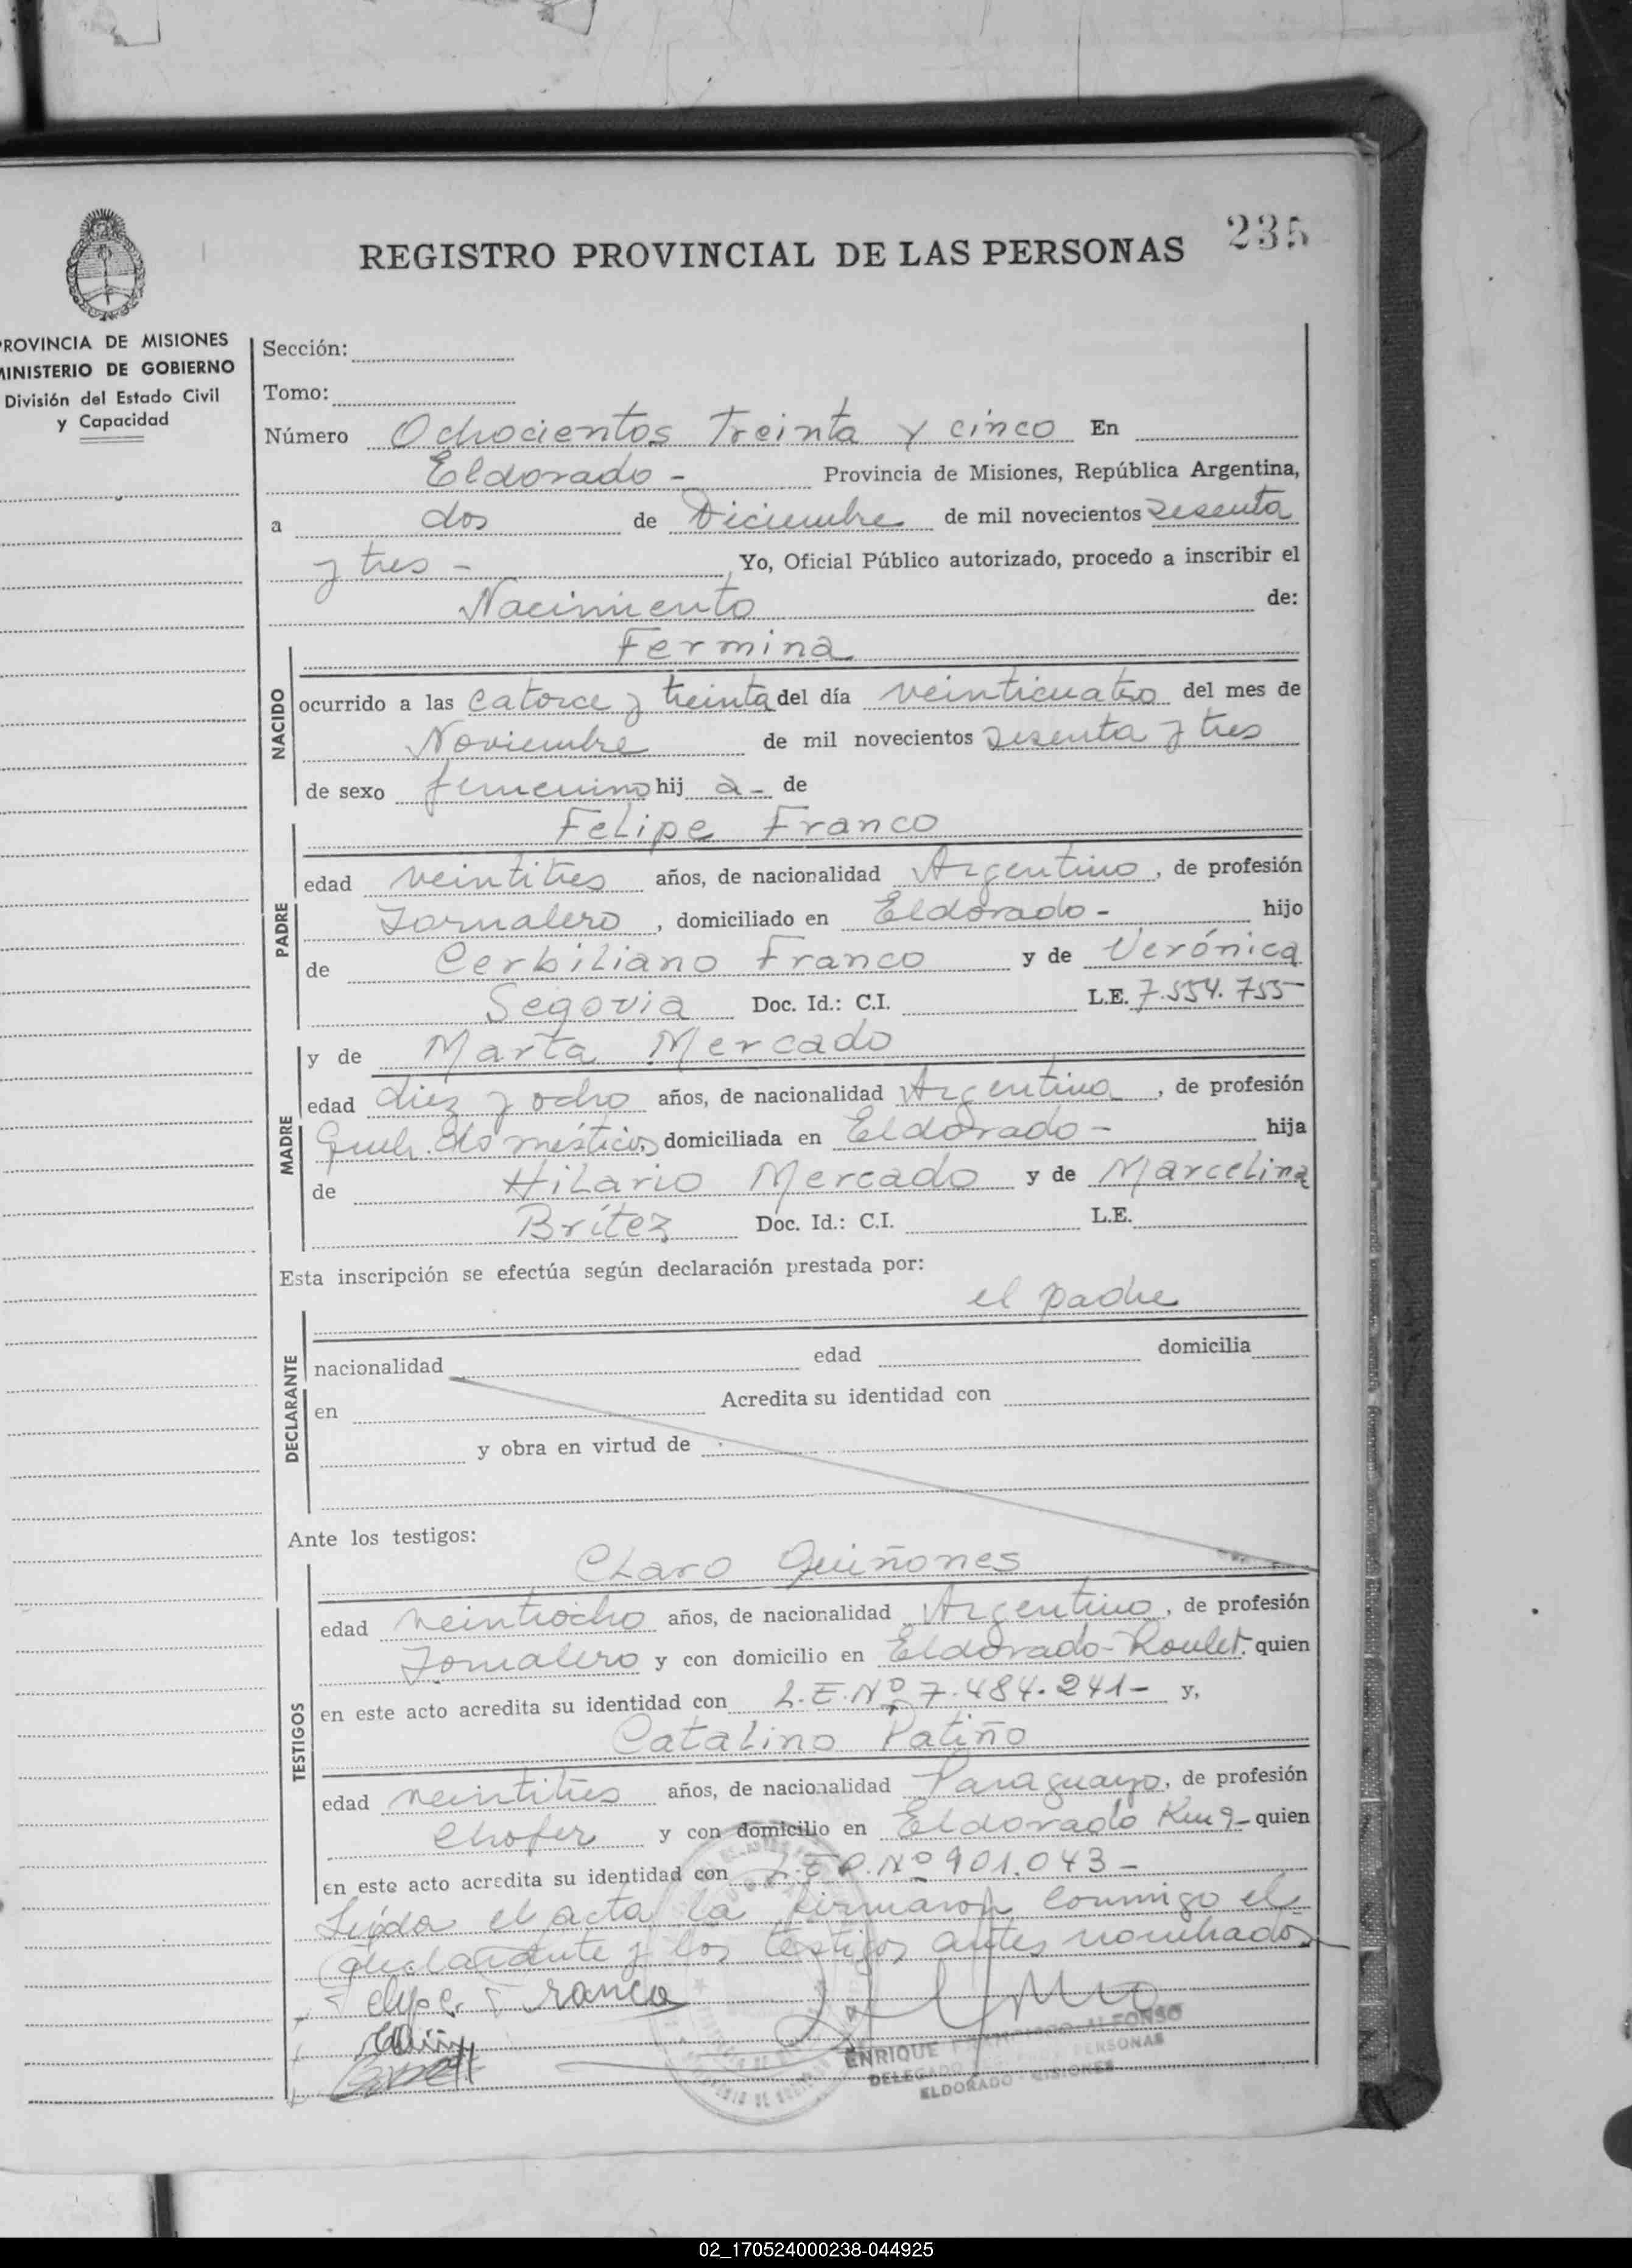 235
REGISTRO PROVINCIAL DE LAS PERSONAS
PROVINCIA DE MISIONES
MINISTERIO DE GOBIERNO
División del Estado Civil
y Capacidad
Sección:
Tomo:
Número Ochocientos Treinta y cinco En
Eldorado - Provincia de Misiones, República Argentina,
a dos de Diciembre de mil novecientos sesenta
y tres - Yo, Oficial Público autorizado, procedo a inscribir el
Nacimiento de:
NACIDO
Fermina
ocurrido a las catorce y treinta del día veinticuatro del mes de
Noviembre de mil novecientos sesenta y tres
de sexo femenino hij a - de
PADRE
Felipe Franco
edad veintitres años, de nacionalidad Argentino, de profesión
Jornalero, domiciliado en Eldorado - hijo
de Cerbiliano Franco y de Verónica
Segovia Doc. Id.: C.I. L.E. 7.554.755
MADRE
y de Marta Mercado
edad diez y ocho años, de nacionalidad Argentina, de profesión
domésticos domiciliada en Eldorado - hija
de Hilario Mercado y de Marcelina
Brítez Doc. Id.: C.I. L.E.
Esta inscripción se efectúa según declaración prestada por:
el padre
DECLARANTE
nacionalidad edad domicilia
en Acredita su identidad con
y obra en virtud de
Ante los testigos:
TESTIGOS
Claro Quiñones
edad veintiocho años, de nacionalidad Argentino, de profesión
Jornalero y con domicilio en Eldorado-Roulet. quien
en este acto acredita su identidad con L.E. Nº 7.484.241 - y,
Catalino Patiño
edad veintitres años, de nacionalidad Paraguayo, de profesión
Chofer y con domicilio en Eldorado Km 9- quien
en este acto acredita su identidad con Nº 901.043 -
Leída el acta la firmaron conmigo el
declarante y los testigos antes nombrados
Felipe Franco
ENRIQUE FRANCISCO ALFONSO
DELEGADO REG. PROV. PERSONAS
ELDORADO - MISIONES
02_170524000238-044925